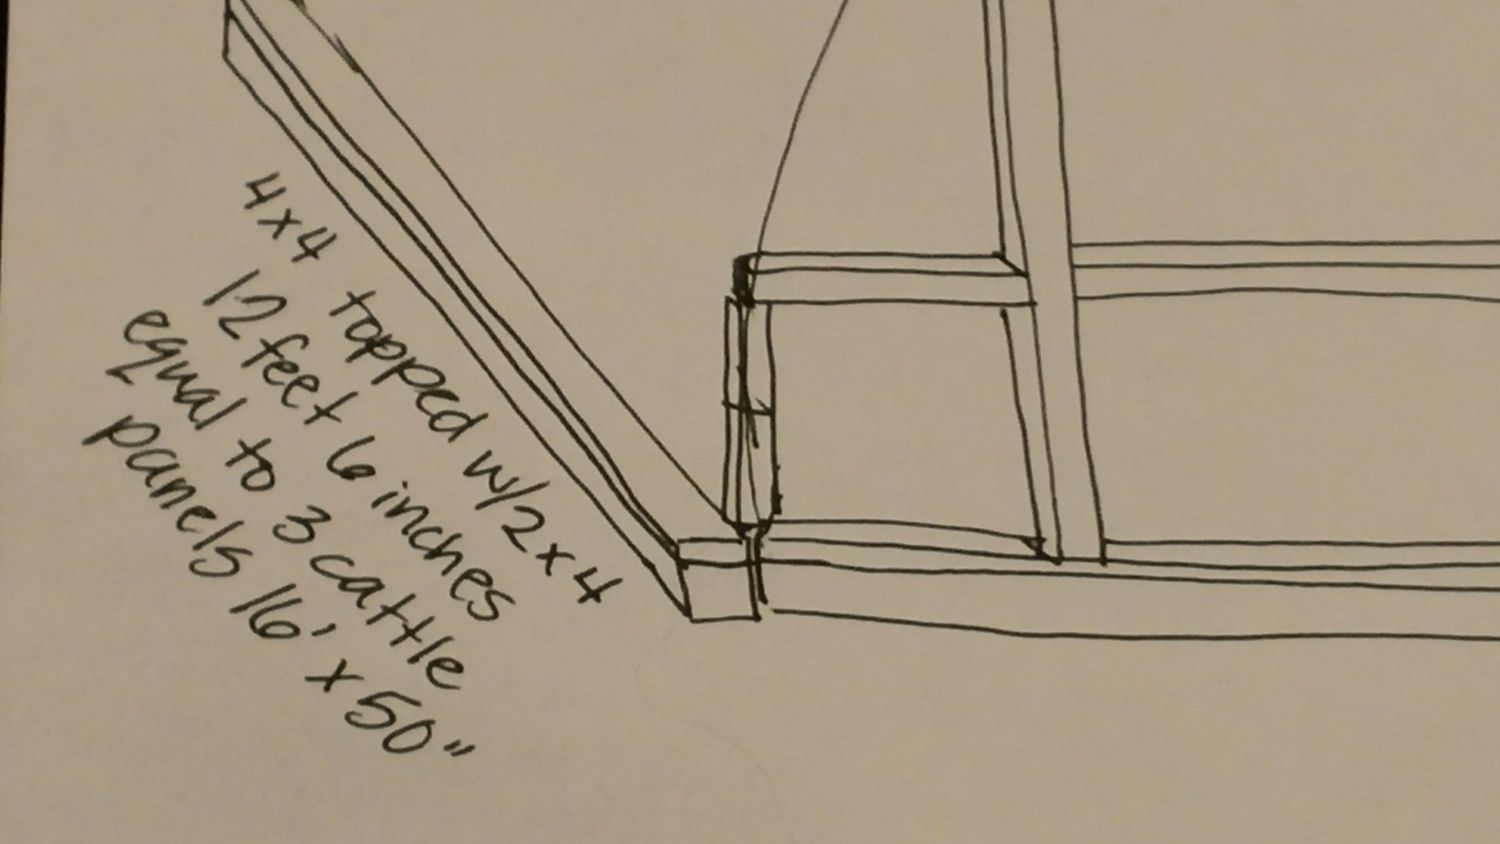 4x4 topped w/2x4
12 feet 6 inches
equal to 3 cattle
panels 16' x 50"